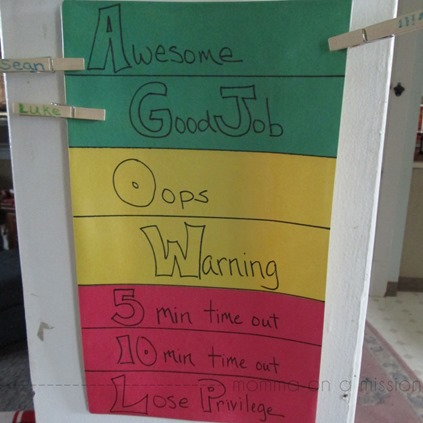 Awesome
Sean
Good Job
Luke
Oops
Warning
5 min time out
10 min time out
momma on a mission
Lose Privilege